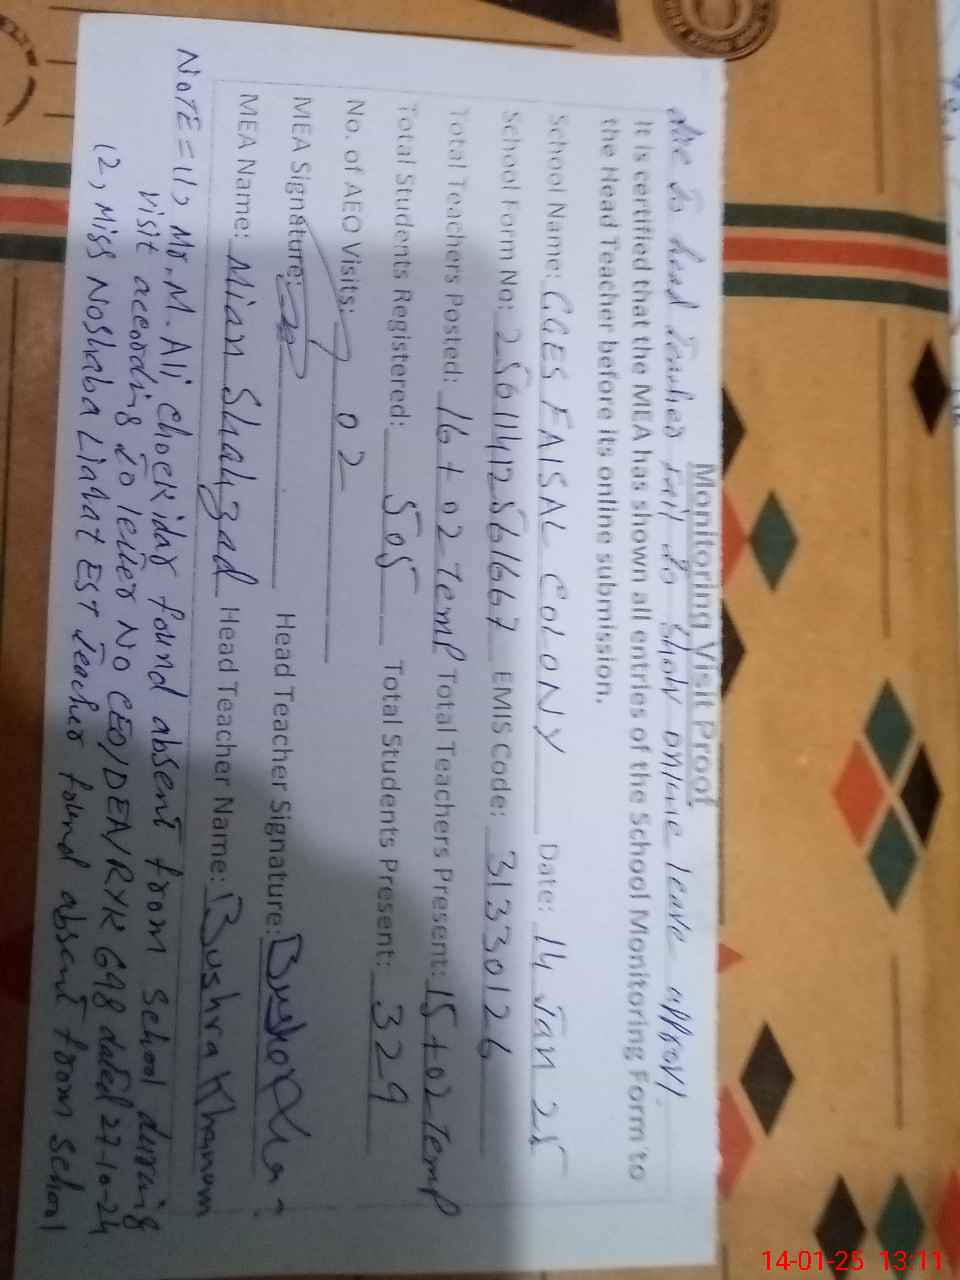 Monitoring Visit Proof
due to head Teacher fail to show online leave approvl.
It is certified that the MEA has shown all entries of the School Monitoring Form to
the Head Teacher before its online submission.
School Name: GGES FAISAL COLONY Date: 14 Jan 25
School Form No: 25011412561667 EMIS Code: 31330126
Total Teachers Posted: 16 + 02 Temp Total Teachers Present: 15 + 02 Temp
Total Students Registered: 505 Total Students Present: 329
No. of AEO Visits: 02
MEA Signature: Head Teacher Signature:
MEA Name: Mian Shahzad Head Teacher Name: Bushra Khanum
NOTE = (1) Mr. M. Ali chockidar found absent from school during
visit according to letter No CEO/DEA/RYK 698 dated 27-10-24
(2) Miss Noshaba Liaqat EST teacher found absent from school
14-01-25 13:11